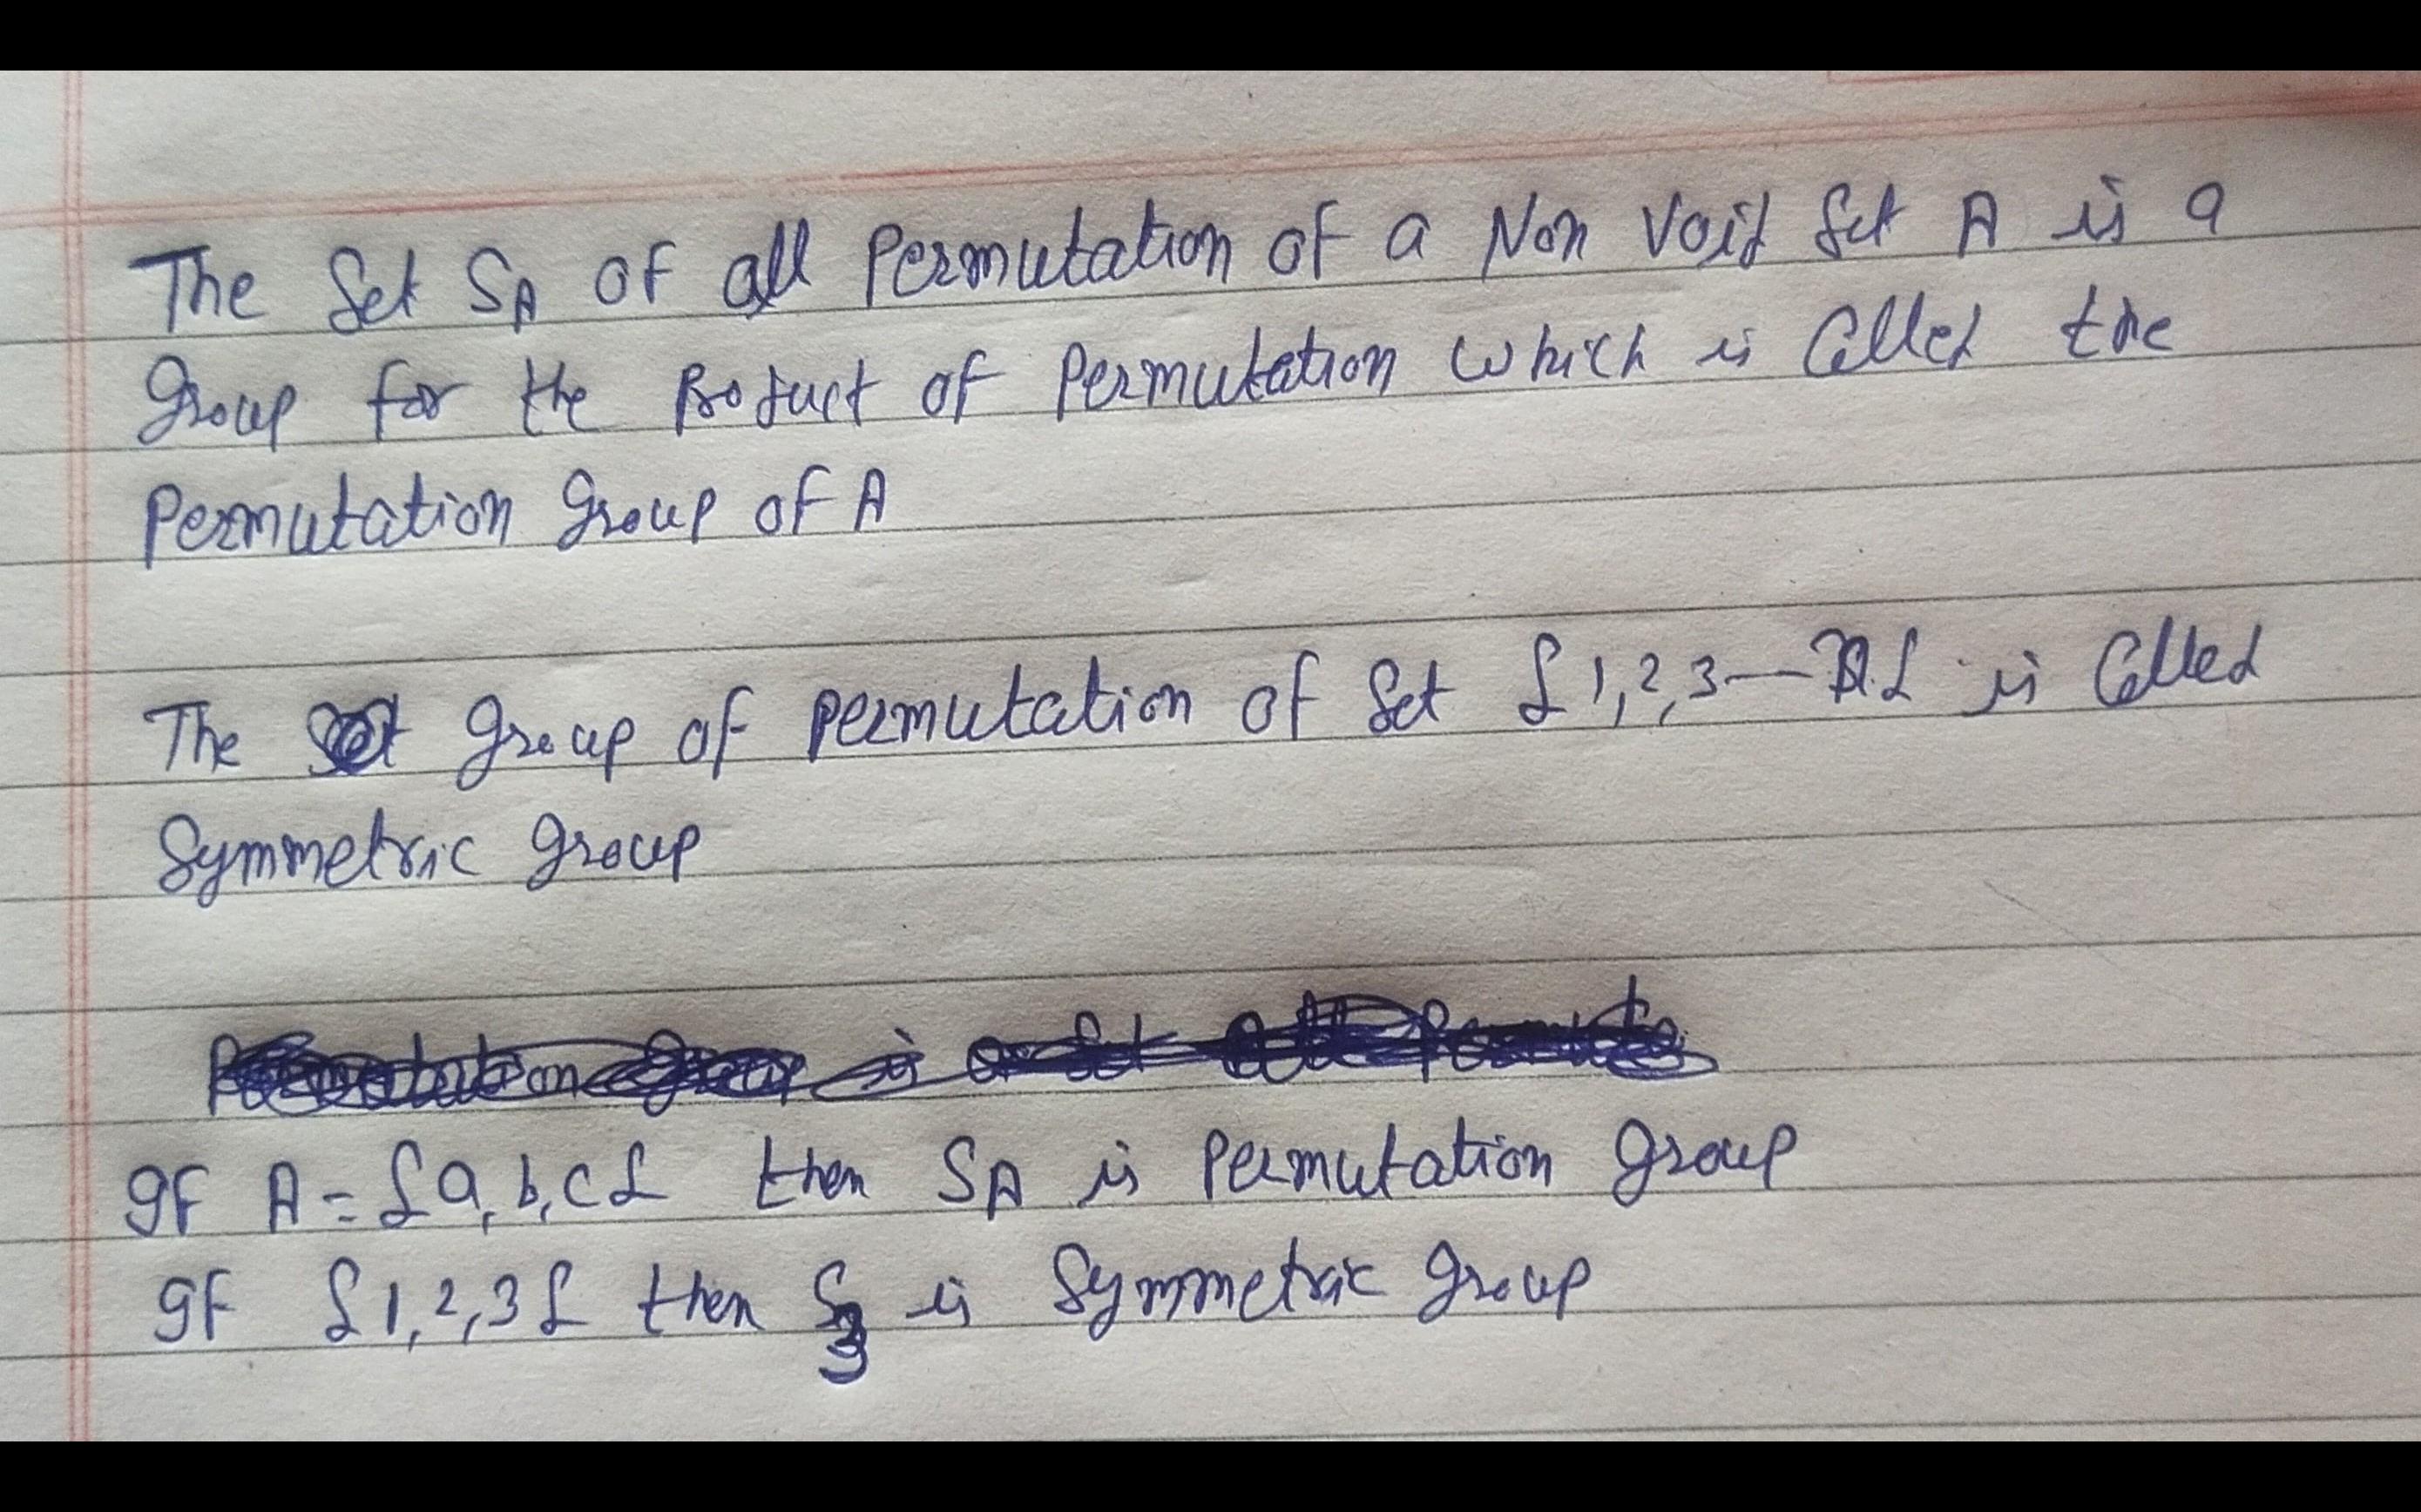 The Set S_A of all Permutation of a Non Void Set A is a
Group for the Product of Permutation which is Called the
Permutation Group of A
The Group of permutation of Set {1,2,3—n} is Called
Symmetric group
If A = {a,b,c} then S_A is Permutation Group
If {1,2,3} then S_3 is Symmetric Group